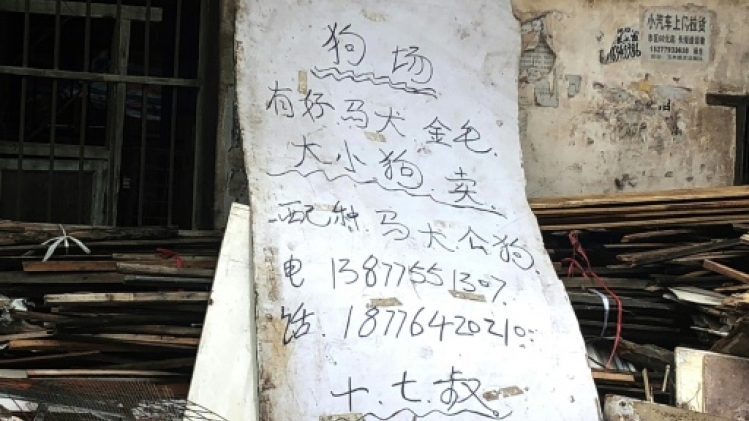 狗场
有好马犬.金毛.
大小狗.卖.
配种.马犬公狗.
电 13877551307.
话.18776420210.
十.七.叔.
小汽车上门拉货